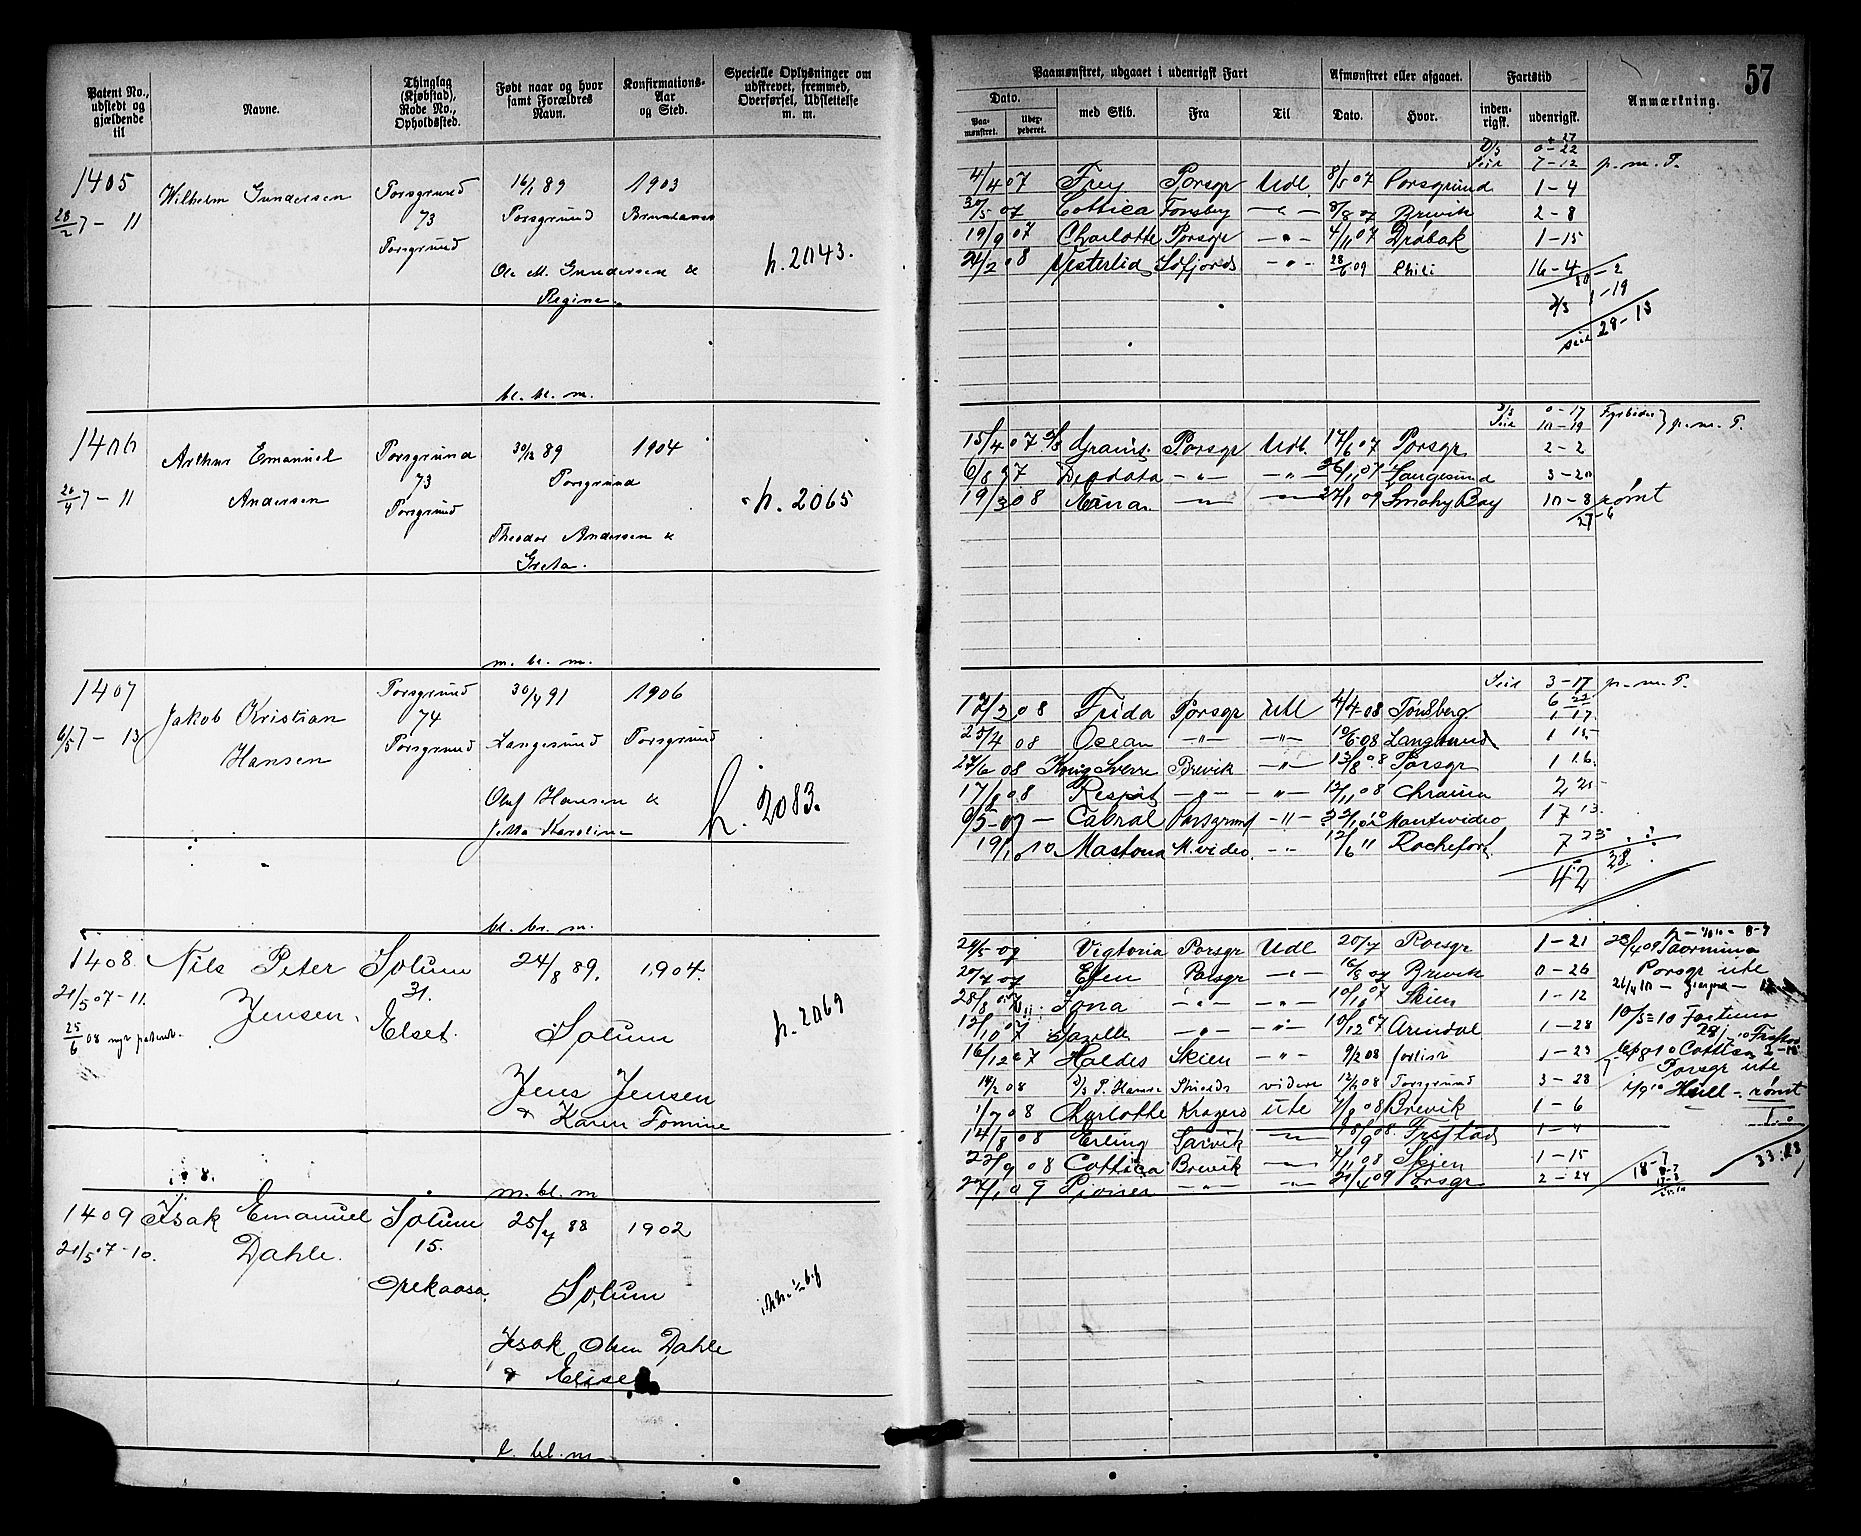 Patent No., udstedt og gjældende til
Navne.
Thinglag (Kjøbstad), Rode No., Opholdssted.
Født naar og hvor samt Forældres Navn.
Konfirmations-Aar og Sted.
Specielle Oplysninger om udskrevet, fremmed, Overførsel, Udslettelse m. m.
Paamønstret, udgaaet i udenrigsk Fart
Afmønstret eller afgaaet.
Fartstid
Anmærkning.
57
Dato.
Paamønstret.
med Skib.
Fra
Til
Dato.
Hvor.
indenrigsk.
udenrigsk.
1405
28/2 7 - 11
Wilhelm Gundersen
Porsgrund
73
Porsgrund
16/1 89
Porsgrund
Ole M. Gundersen &
Regine.
1903
h. 2043.
bl. bl. m.
D/S 0-22
Seil 7-12 p. m. T.
4/4 07 Frey Porsgr Udl 8/5 07 Porsgrund 1-4
30/5 07 Cottica Tønsberg -"- 8/8 07 Brevik 2-8
19/9 07 Charlotte Porsgr -"- 4/11 07 Drøbak 1-15
24/2 08 Vesterlid -"- 28/6 09 Chili 16-4
D/S 1-19
Seil 28-13
1406
26/4 7 - 11
Arthur Emanuel
Andersen
Porsgrund
73
Porsgrund
30/12 89
Porsgrund
Theodor Andersen &
Greta.
1904
h. 2065
m. bl. m.
D/S 0-17
Seil 10-19 p. m. T.
15/4 07 D/S Porsgr Udl. 17/6 07 Porsgr 2-2
6/8 07 Deodata -"- -"- 26/11 07 Langesund 3-20
19/3 08 -"- -"- 27/1 09 Smoky Bay 10-8 rømt
27-6
1407
6/5 7 - 13
Jakob Kristian
Hansen
Porsgrund
74
Porsgrund
30/4 91
Langesund
Oluf Hansen &
Jetta Karoline
1906
Porsgrund
h. 2083.
bl. br. m.
Seil 3-17 p. m. T.
6 22
12/2 08 Frida Porsgr Udl 4/4-08 Tønsberg 1 17
25/4 08 Ocean -"- -"- 10/6-08 Langesund 1 15
27/6 08 Kong Sverre Brevik -"- 13/8 08 Porsgr 1 16.
17/8 08 Respit -"- -"- 12/11 08 Chraina 2 25
6/5-09 - Cabral Porsgrund -"- Montevideo 17 13
19/1 10 Mastona M.video -"- 12/6 11 Rochefort 7 23
42 28
1408
21/5 07-11.
25/6 08 nyt patent.
Nils Peter
Jensen.
Solum
31.
Elset.
24/8 89.
Solum
Jens Jensen
& Karen Tomine
1904.
h. 2069
m. bl. m
24/5-07 Vigtoria Porsgr Udl 20/7 Porsgr 1-21
20/7 07 Efen Porsgr -"- 16/8 07 Brevik 0-26
28/8 07 Jona -"- -"- 10/10 07 Skien 1-12
12/10 07 Gazelle -"- -"- 10/12 07 Arendal 1-28
16/12 07 Haldis Skien -"- 9/2 08 forlist 1-23
14/2 08 Shields videre 12/6 08 Porsgrund 3-28
1/7 08 Charlotte Kragerø ute 7/8 08 Brevik 1-6
14/8 08 Erling Larvik -"- 18/9 08 Frestad 1-4
22/9 08 Cottica Brevik -"- 7/11 08 Skien 1-15
27/1 09 Pioner -"- -"- 21/4 09 Porsgr 2-24
23/4 09 Normina
Porsgr ute
10/5-10 Fortuna
Cottica
Porsgr ute
Hull - rømt
18-7
33.23
1409
21/5 07-10.
Isak Emanuel
Dahle.
Solum
15.
Orekaasa.
25/7 88
Solum
Isak Olsen Dahle
& Elise
1902
l. bl. m